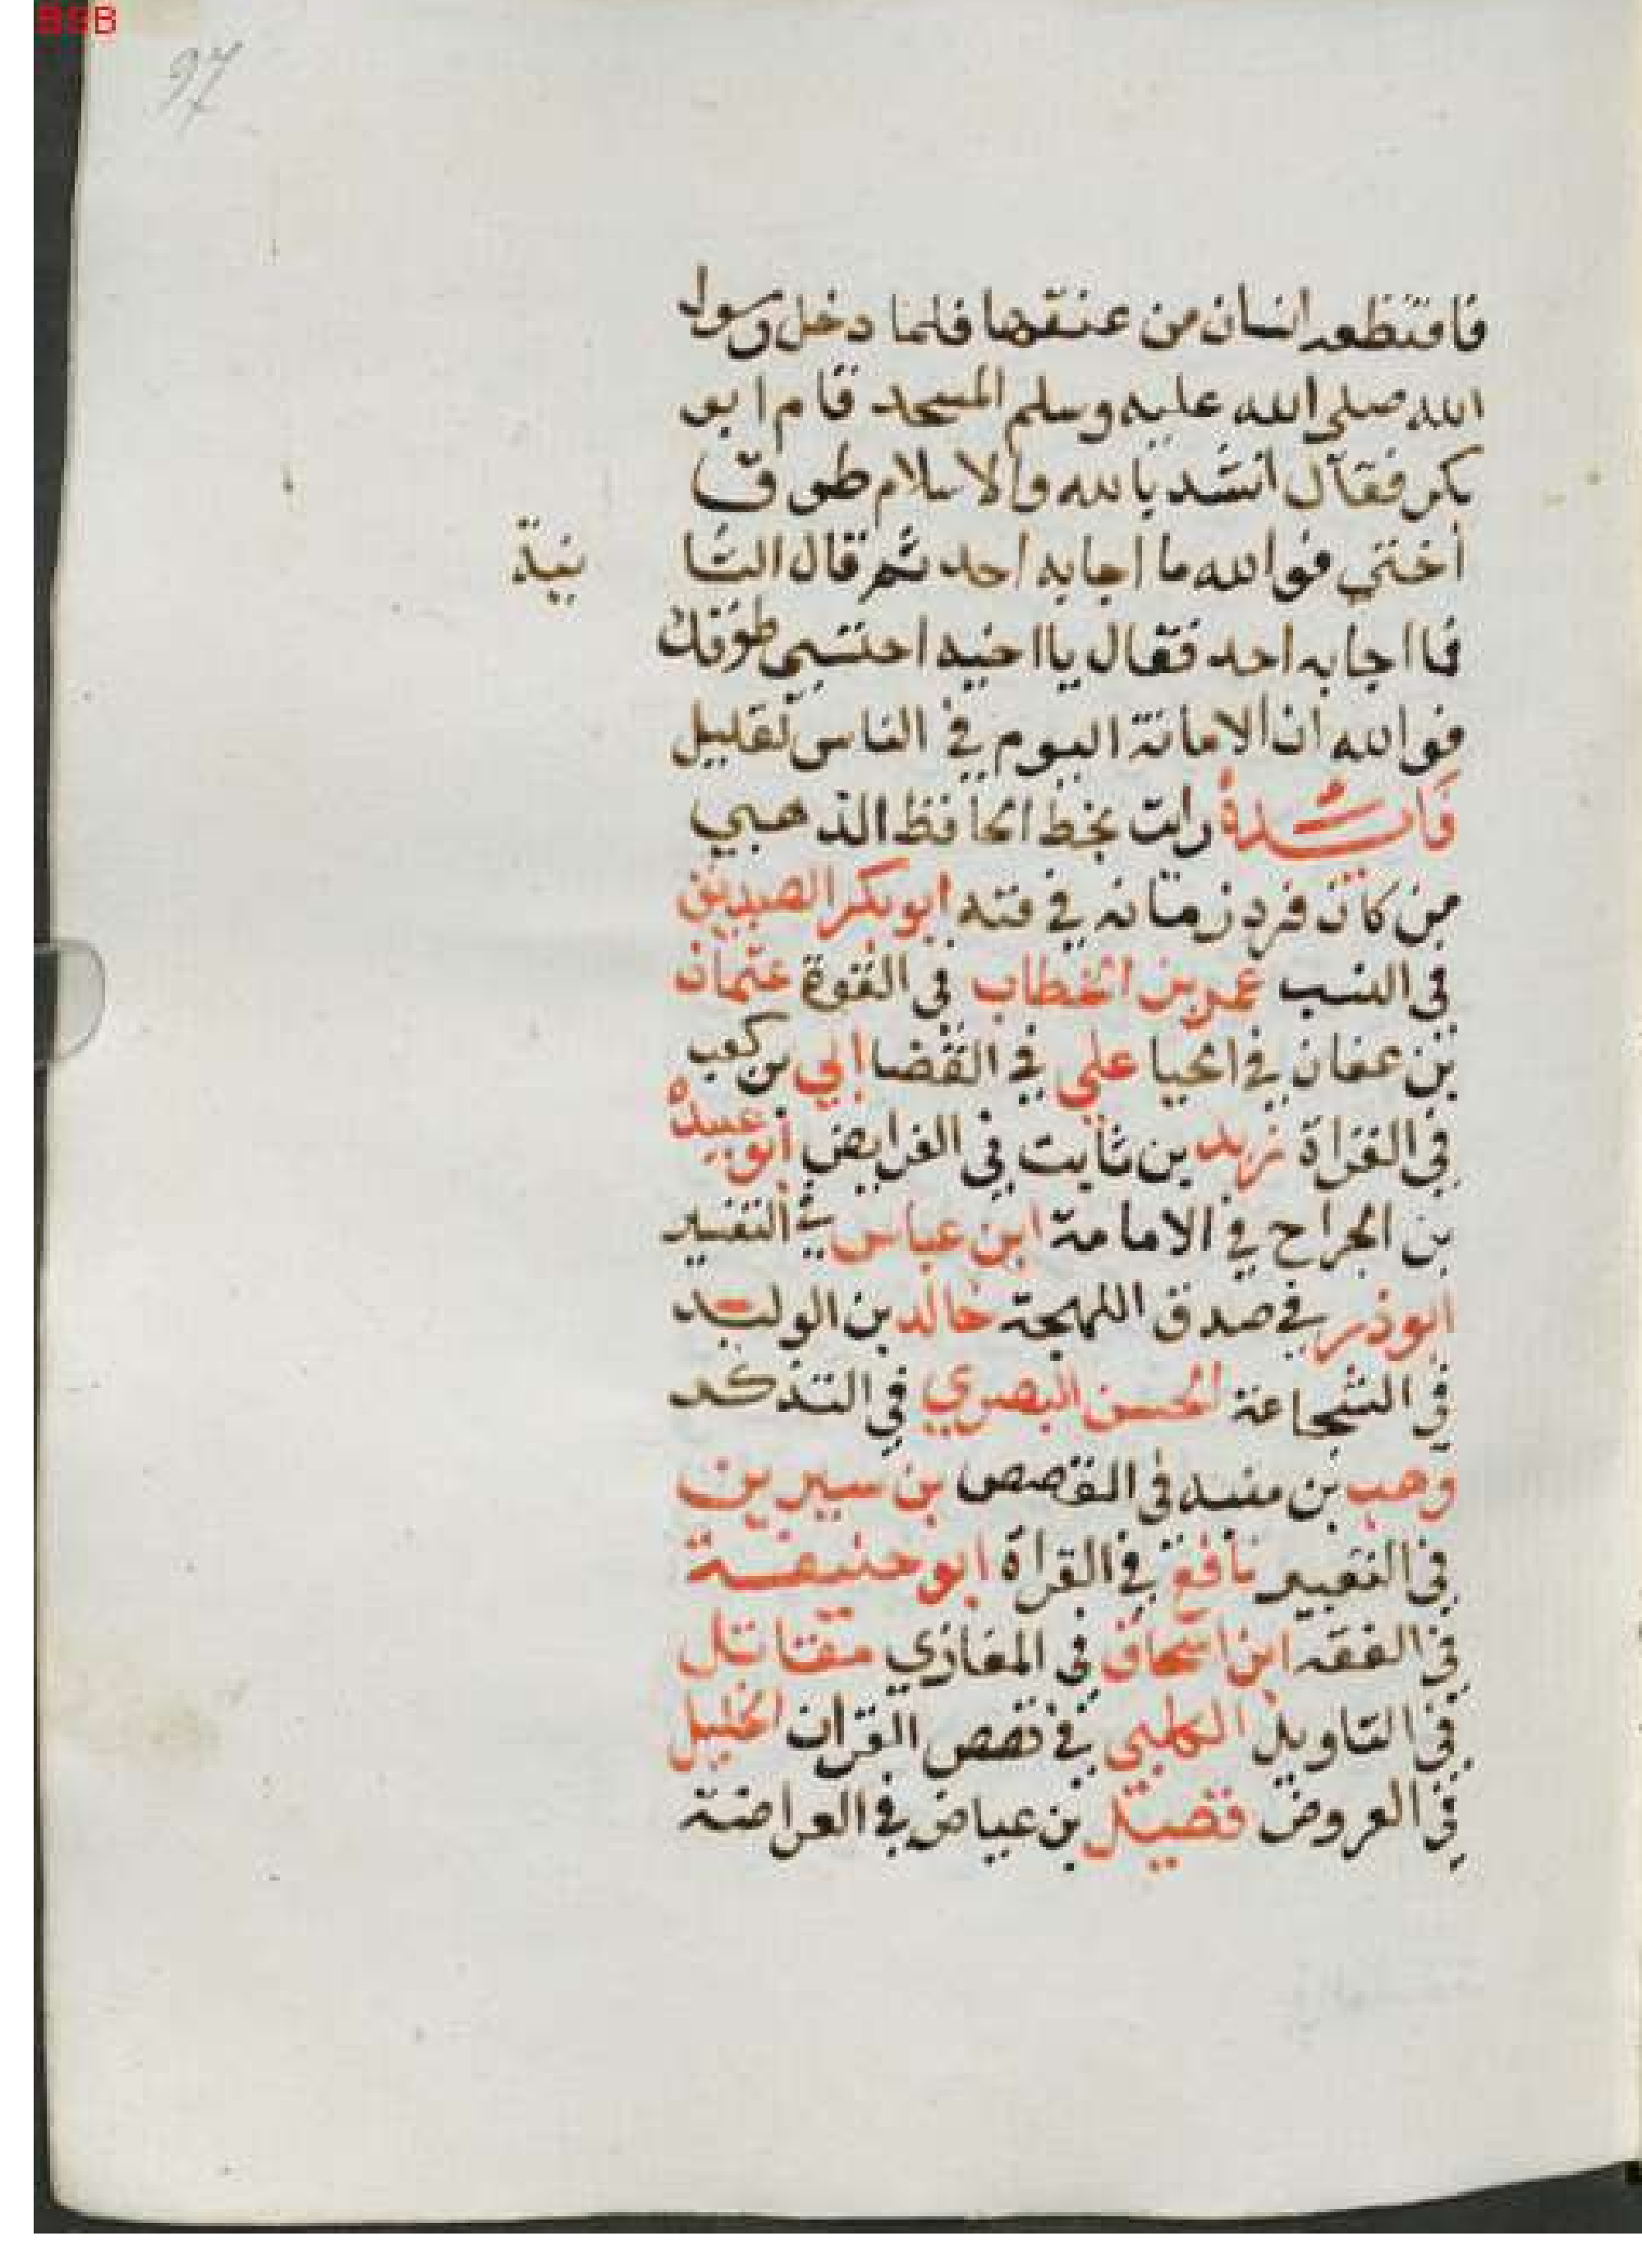 BSB
97
فاقتطعه انسان من عنقها فلما دخل رسول
الله صلى الله عليه وسلم المسجد قام ابو
بكر فقال انشد بالله والاسلام طوق
أختي فوالله ما اجابه احد ثم قال الثا نية
فما اجابه احد فقال يا اخيه احتسبي طوقك
فوالله ان الامانة اليوم في الناس لقليل
فائدة رايت بخط الحافظ الذهبي
من كان فرد زمانه في فنه ابو بكر الصديق
في النسب عمر بن الخطاب في القوة عثمان
بن عفان في الحيا علي في القضا ابي بن كعب
في القراة زيد بن ثابت في الفرايض أبو عبيدة
بن الجراح في الامامة ابن عباس في التفسير
ابو ذر في صدق اللهجة خالد بن الوليد
في الشجاعة الحسن البصري في التذكد
وهب بن منبه في القصص بن سيرين
في التعبير نافع في القراة ابو حنيفة
في الفقه ابن اسحاق في المغازي مقاتل
في التاويل الكلبي في قصص القران الخليل
في العروض فضيل بن عياض في العراضة